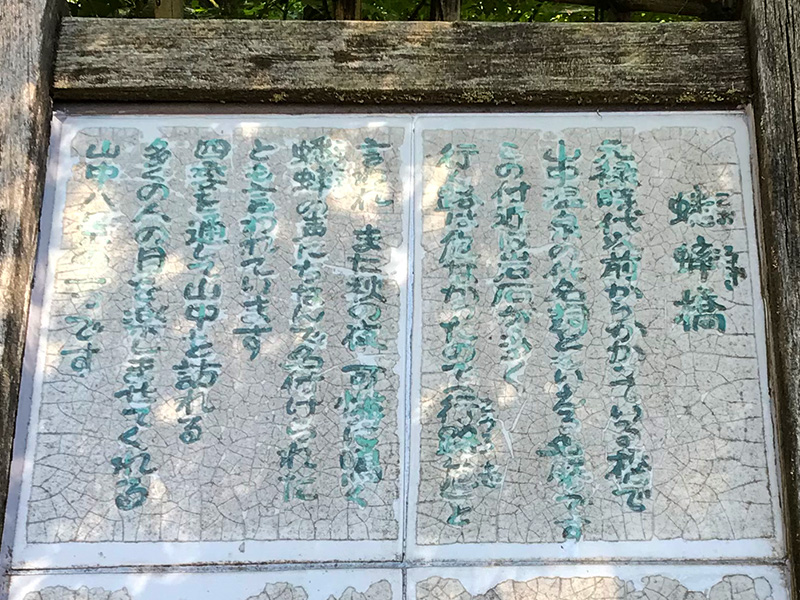 蟋蟀橋
こおろぎ
元禄時代以前からかかっている橋で
山中温泉の代名詞といえる名橋です
この付近は岩石が多く
行く路は危なかったので行路危と
こうろぎ
言われ また秋の夜 可憐に鳴く
蟋蟀の声にちなんで名付けられた
とも言われています
四季を通して山中を訪れる
多くの人の目を楽しませてくれる
山中八景の一つです